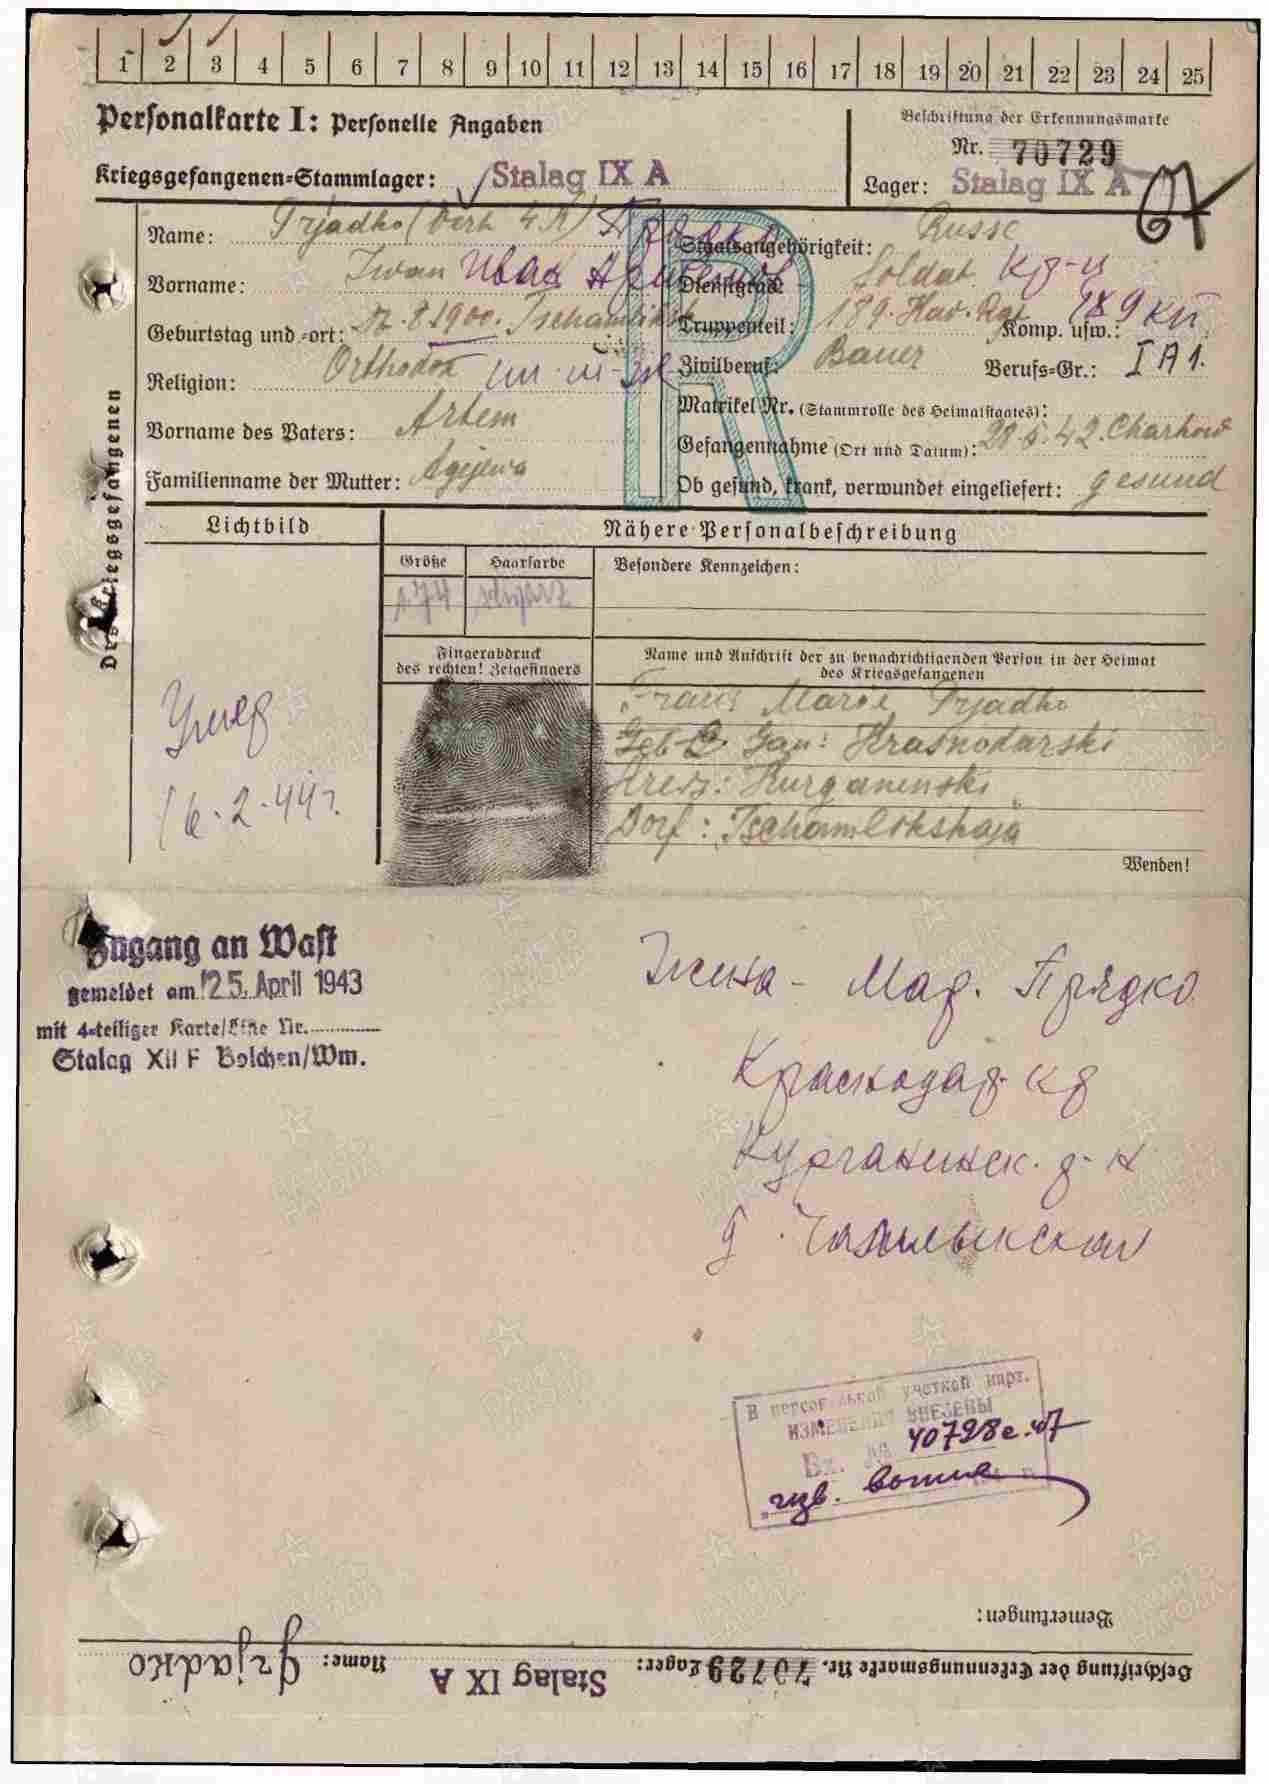 1 2 3 4 5 6 7 8 9 10 11 12 13 14 15 16 17 18 19 20 21 22 23 24 25
Personalkarte I: Personelle Angaben
Beschriftung der Erkennungsmarke
Nr. 70729
Kriegsgefangenen-Stammlager: Stalag IX A
Lager: Stalag IX A
Des Kriegsgefangenen
Name: Prjadko
Staatsangehörigkeit: Russe
Vorname: Iwan Иван
Dienstgrad: Soldat кр-ц
Geburtstag und -ort: 8.1900. Tschamlikskaja
Truppenteil: 189. Kav. Rgt Komp. usw.: 189 кп
Religion: Orthodox
Zivilberuf: Bauer Berufs-Gr.: I A 1.
Matrikel Nr. (Stammrolle des Heimatstaates):
Vorname des Vaters: Artem
Gefangennahme (Ort und Datum): 28.5.42. Charkow
Familienname der Mutter: Agejewa
Ob gesund, krank, verwundet eingeliefert: gesund
R
Lichtbild
Nähere Personalbeschreibung
Größe Haarfarbe Besondere Kennzeichen:
Fingerabdruck
des rechten! Zeigefingers
Name und Anschrift der zu benachrichtigenden Person in der Heimat
des Kriegsgefangenen
Marie Prjadko
Krasnodarski
Kreis: Kurganinski
Dorf: Tschamlikskaja
Умер
16.2.44 г.
Wenden!
Zugang an Wast
gemeldet am 25. April 1943
mit 4-teiliger Karte/Liste Nr.
Stalag XII F Bolchen/Wm.
Жена - Мар. Прядко
Краснодар. кр
Курганинск. р-н
д. Чамлыкская
В персональной учетной карт.
ИЗМЕНЕНИЯ ВНЕСЕНЫ
Вх. № 40728с.47
Bemerkungen:
Beschriftung der Erkennungsmarke Nr. 70729 Lager: Stalag IX A Name: Prjadko